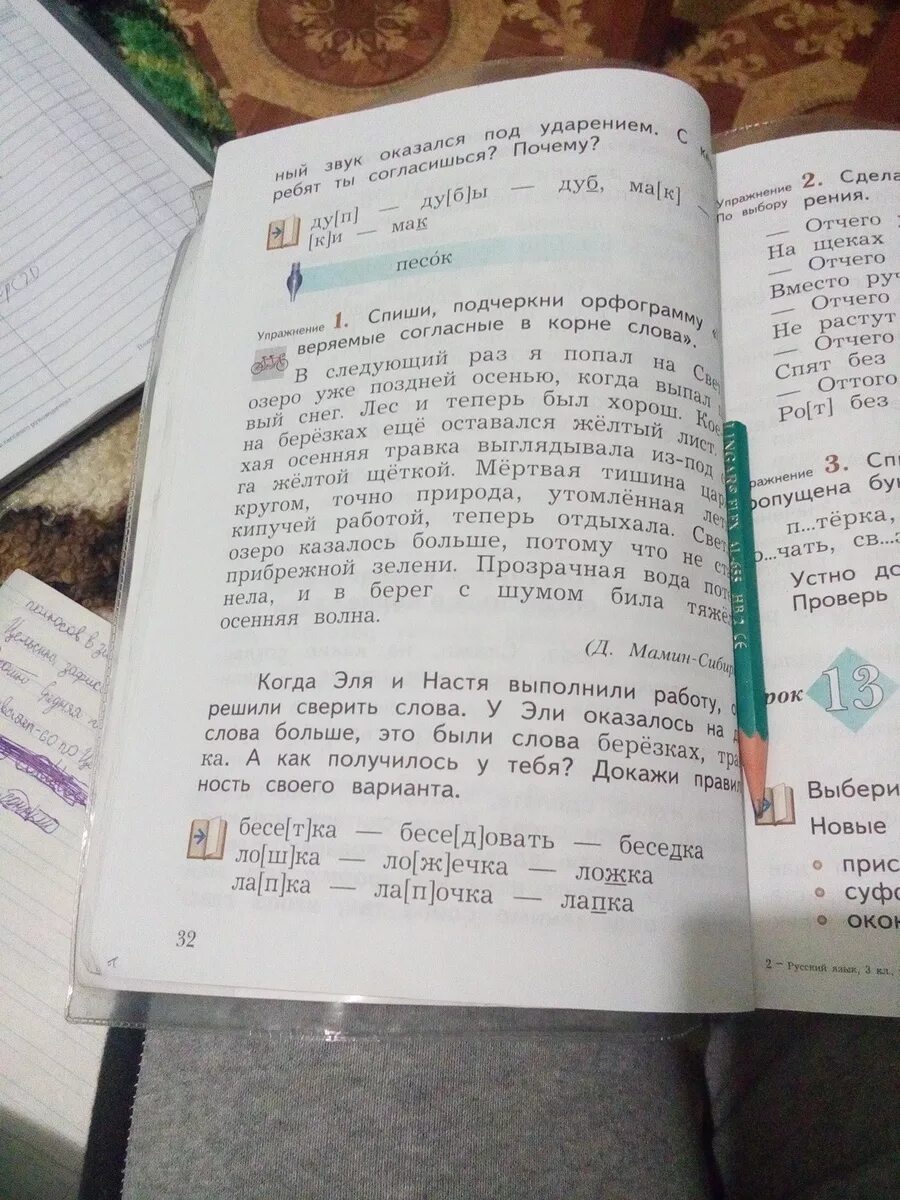 ный звук оказался под ударением. С
ребят ты согласишься? Почему?
ду[п] — ду[б]ы — дуб, ма[к] —
[к]и — мак
песо́к
Упражнение 1. Спиши, подчеркни орфограмму
веряемые согласные в корне слова».
В следующий раз я попал на Све
озеро уже поздней осенью, когда выпал
вый снег. Лес и теперь был хорош. Кое
на берёзках ещё оставался жёлтый лист.
хая осенняя травка выглядывала из-под
га жёлтой щёткой. Мёртвая тишина цар
кругом, точно природа, утомлённая лет
кипучей работой, теперь отдыхала. Свет
озеро казалось больше, потому что не ст
прибрежной зелени. Прозрачная вода пот
нела, и в берег с шумом била тяжё
осенняя волна.
(Д. Мамин-Сибир
Когда Эля и Настя выполнили работу, о
решили сверить слова. У Эли оказалось на д
слова больше, это были слова берёзках, тра
ка. А как получилось у тебя? Докажи правил
ность своего варианта.
бесе[т]ка — бесе[д]овать — беседка
ло[ш]ка — ло[ж]ечка — ложка
ла[п]ка — ла[п]очка — лапка
32
Упражнение 2. Сдела
По выбору рения.
— Отчего
На щеках
— Отчего
Вместо руч
— Отчего
Не растут
— Отчего
Спят без
— Оттого
Ро[т] без
ражнение 3. Сп
ропущена бу
п...тёрка,
о...чать, св...з
Устно до
Проверь
рок 13
Выбери
Новые
прис
суфф
окон
2 — Русский язык, 3 кл.,